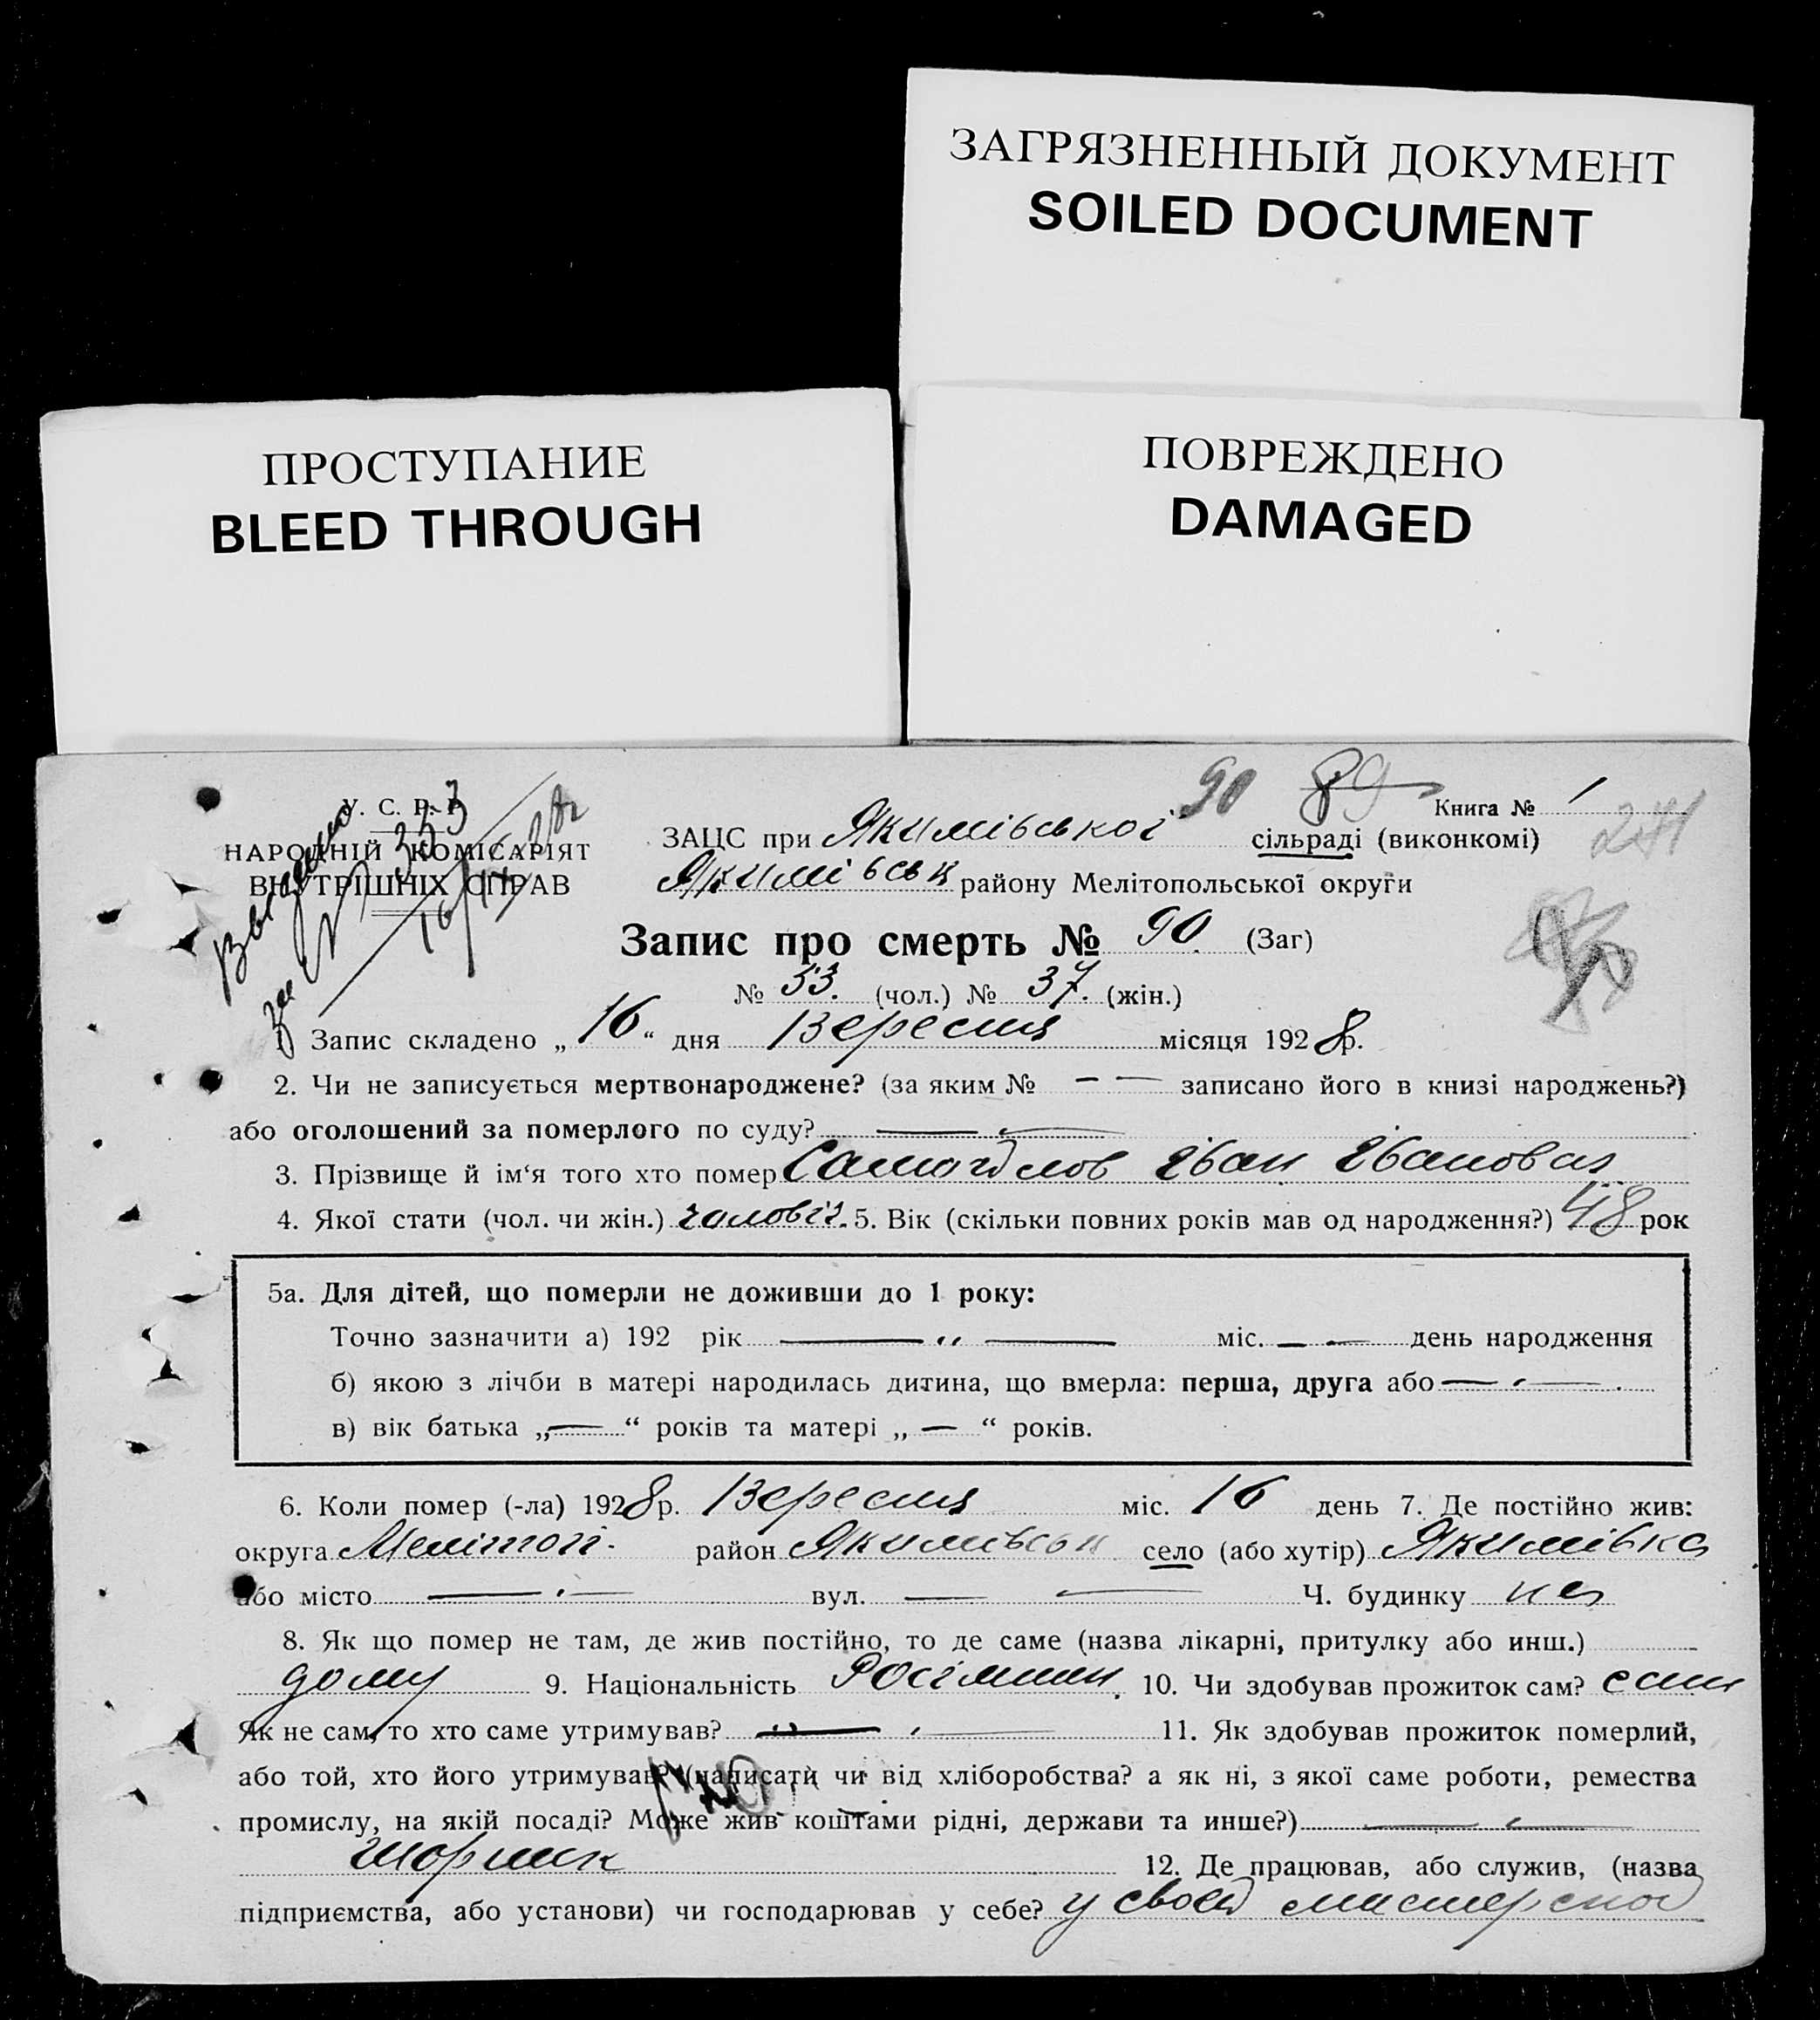 ЗАГРЯЗНЕННЫЙ ДОКУМЕНТ
SOILED DOCUMENT
ПРОСТУПАНИЕ
BLEED THROUGH
ПОВРЕЖДЕНО
DAMAGED
90 89
Книга № 1
241
У. С. Р. Р.
НАРОДНІЙ КОМІСАРІЯТ
ВНУТРІШНІХ СПРАВ
Выдано
за № 353
ЗАЦС при Якимівської сільраді (виконкомі)
Якимівськ району Мелітопольської округи
Запис про смерть № 90. (Заг)
№ 53. (чол.) № 37. (жін.)
Запис складено „16“ дня Вересня місяця 1928р.
2. Чи не записується мертвонароджене? (за яким № — — записано його в книзі народжень?)
або оголошений за померлого по суду? —
3. Прізвище й ім‘я того хто помер Іван Іванович
4. Якої стати (чол. чи жін.) чоловіч. 5. Вік (скільки повних років мав од народження?) 48 рок
5а. Для дітей, що померли не доживши до 1 року:
Точно зазначити а) 192 рік — „ — міс. — — день народження
б) якою з лічби в матері народилась дитина, що вмерла: перша, друга або —
в) вік батька „—“ років та матері „—“ років.
6. Коли помер (-ла) 1928р. Вересня міс. 16 день 7. Де постійно жив:
округа Мелітоп. район Якимівськ село (або хутір) Якимівка
або місто — вул. — Ч. будинку
8. Як що помер не там, де жив постійно, то де саме (назва лікарні, притулку або инш.)
дому 9. Національність 10. Чи здобував прожиток сам? сам
Як не сам, то хто саме утримував? — 11. Як здобував прожиток померлий,
або той, хто його утримував? (написати чи від хліборобства? а як ні, з якої саме роботи, ремества
промислу, на якій посаді? Може жив коштами рідні, держави та инше?) —
шорник 12. Де працював, або служив, (назва
підприємства, або установи) чи господарював у себе? у своей мастерской